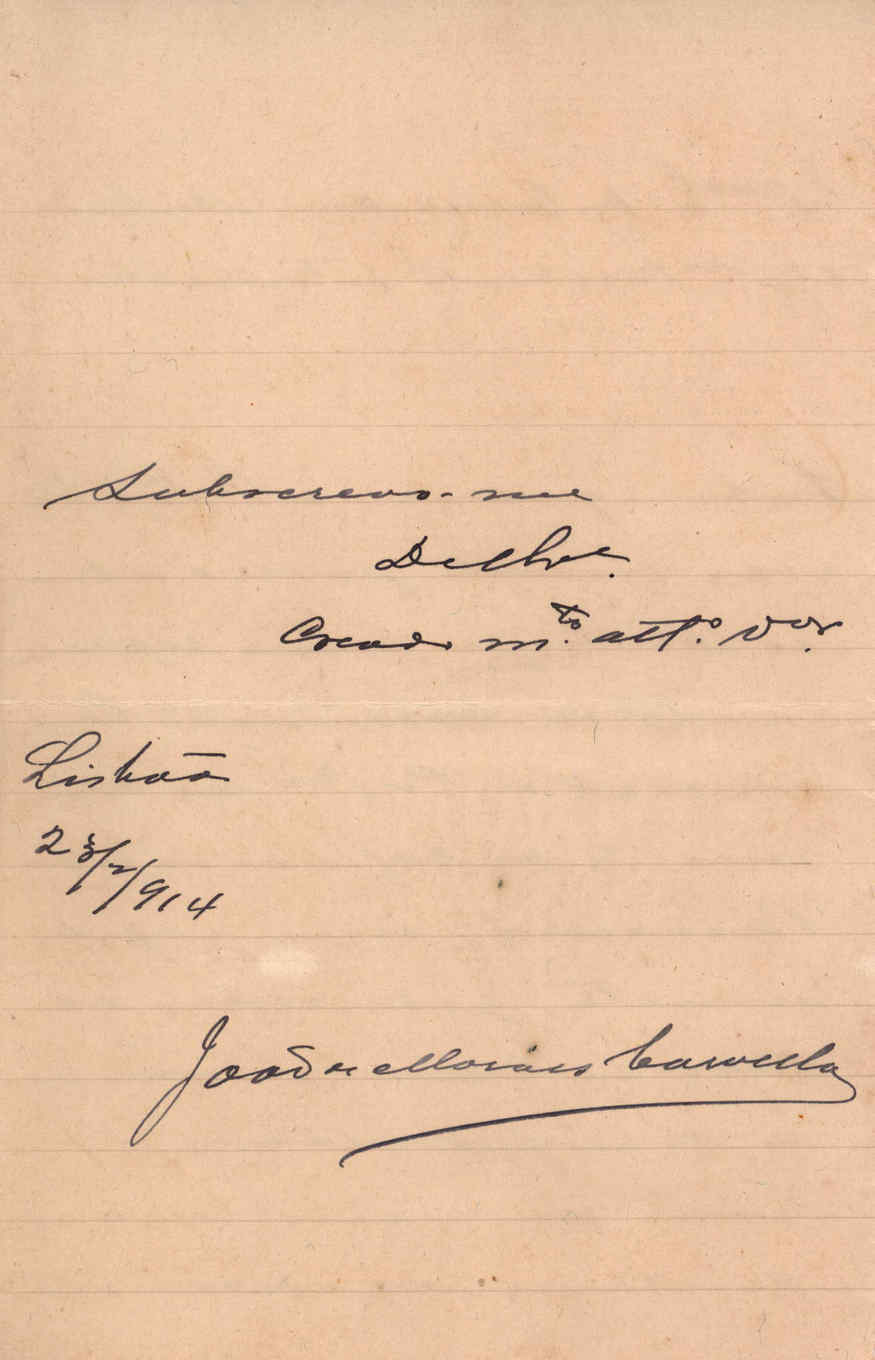 Subscrevo-me
De V.Exª.
Creado m.to att.o V.or
Lisbôa
23/2/914
João de Moraes Carvalho